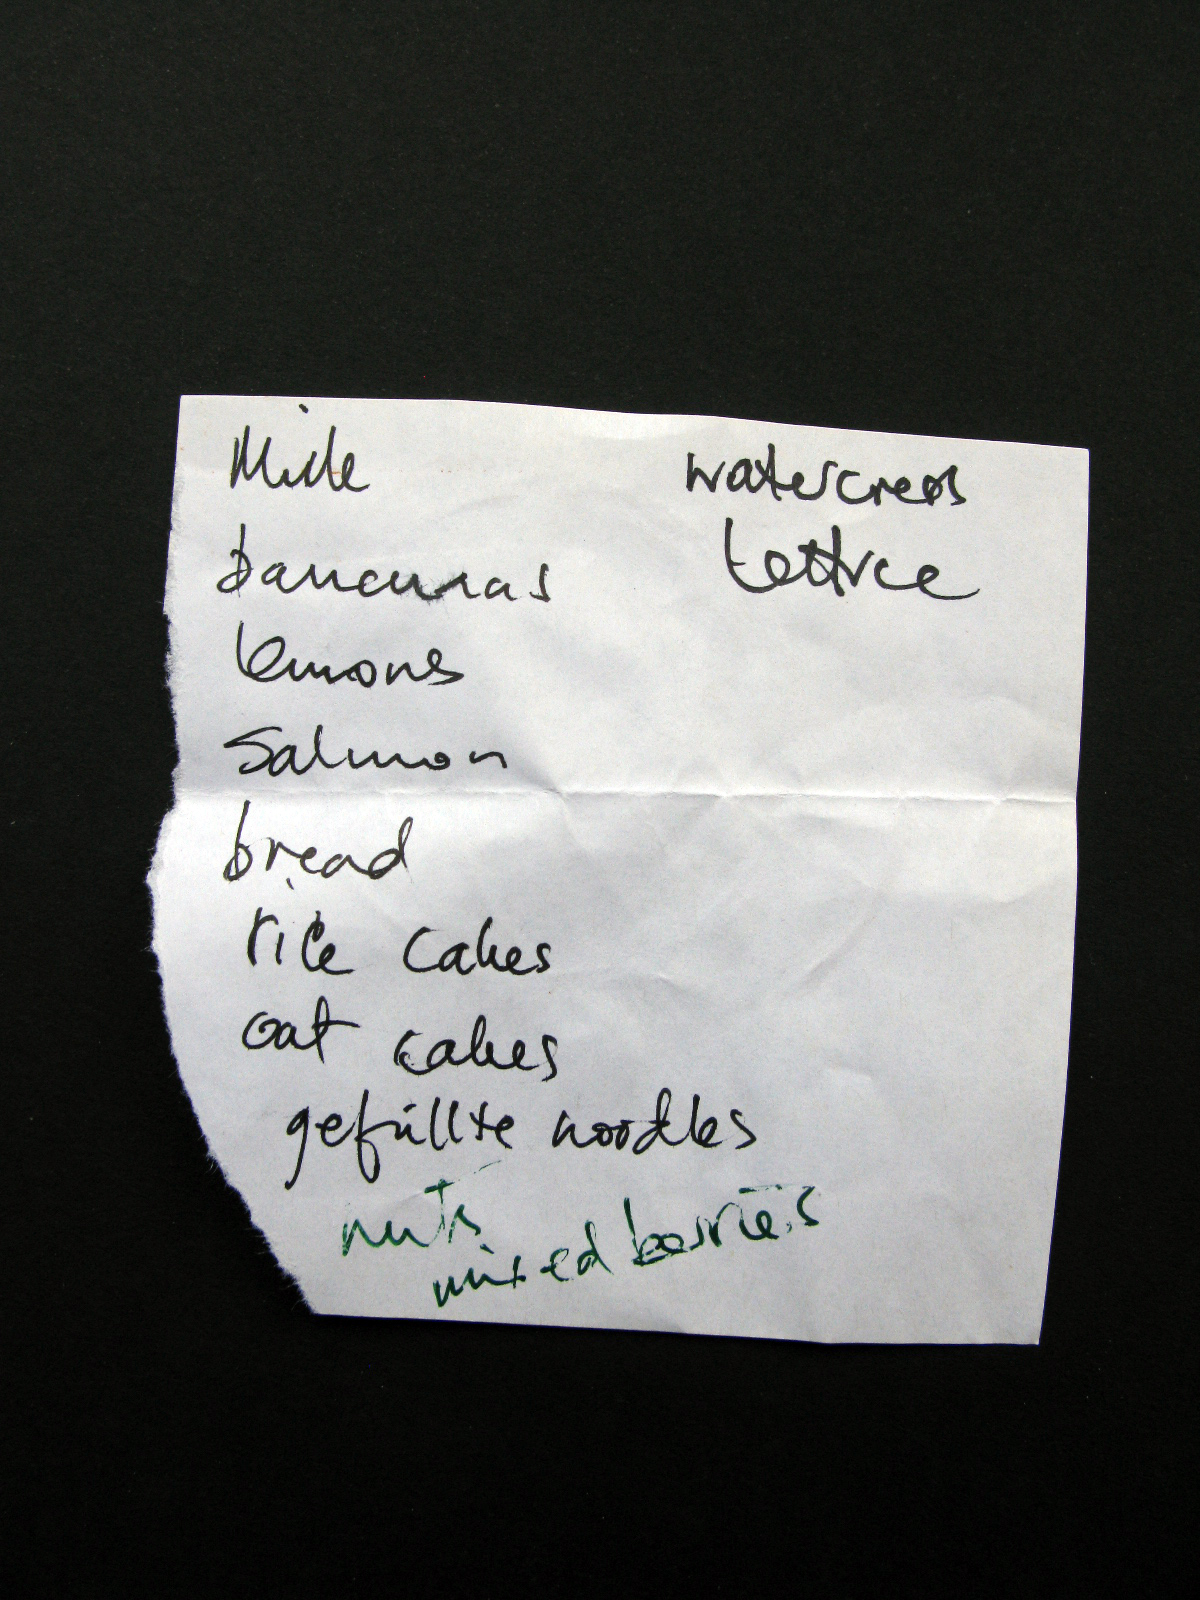 Milk
bananas
lemons
Salmon
bread
rice cakes
oat cakes
gefüllte noodles
nuts
mixed berries
watercress
Lettuce